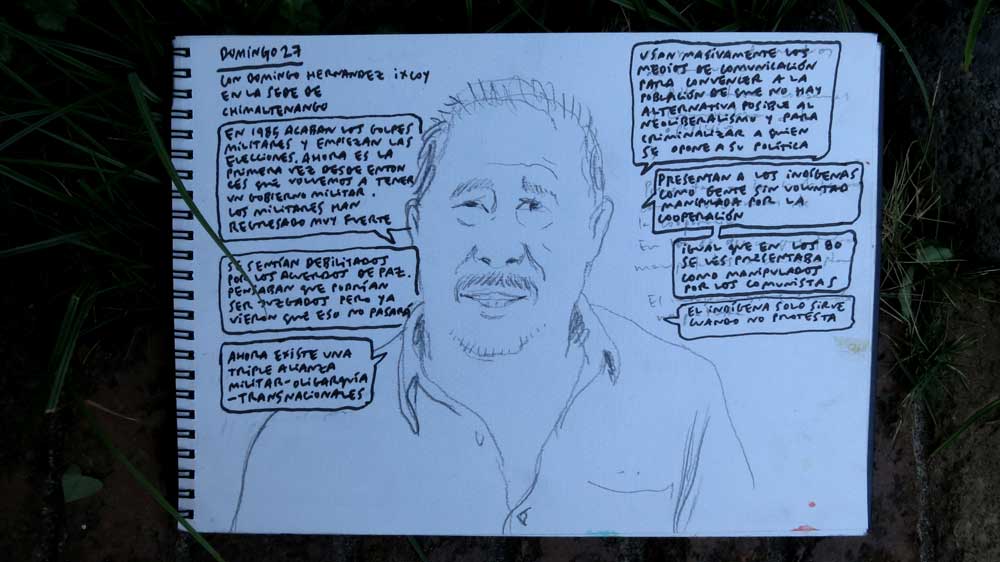 DOMINGO 27
CON DOMINGO HERNANDEZ IXCOY
EN LA SEDE DE
CHIMALTENANGO
EN 1985 ACABAN LOS GOLPES
MILITARES Y EMPIEZAN LAS
ELECCIONES. AHORA ES LA
PRIMERA VEZ DESDE ENTON
CES QUE VOLVEMOS A TENER
UN GOBIERNO MILITAR.
LOS MILITARES HAN
REGRESADO MUY FUERTE
SE SENTÍAN DEBILITADOS
POR LOS ACUERDOS DE PAZ.
PENSABAN QUE PODRÍAN
SER JUZGADOS PERO YA
VIERON QUE ESO NO PASARÁ
AHORA EXISTE UNA
TRIPLE ALIANZA
MILITAR-OLIGARQUÍA
-TRANSNACIONALES
USAN MASIVAMENTE LOS
MEDIOS DE COMUNICACIÓN
PARA CONVENCER A LA
POBLACIÓN DE QUE NO HAY
ALTERNATIVA POSIBLE AL
NEOLIBERALISMO Y PARA
CRIMINALIZAR A QUIEN
SE OPONE A SU POLÍTICA
PRESENTAN A LOS INDÍGENAS
COMO GENTE SIN VOLUNTAD
MANIPULADA POR LA
COOPERACIÓN
IGUAL QUE EN LOS 80
SE LES PRESENTABA
COMO MANIPULADOS
POR LOS COMUNISTAS
EL INDÍGENA SOLO SIRVE
CUANDO NO PROTESTA